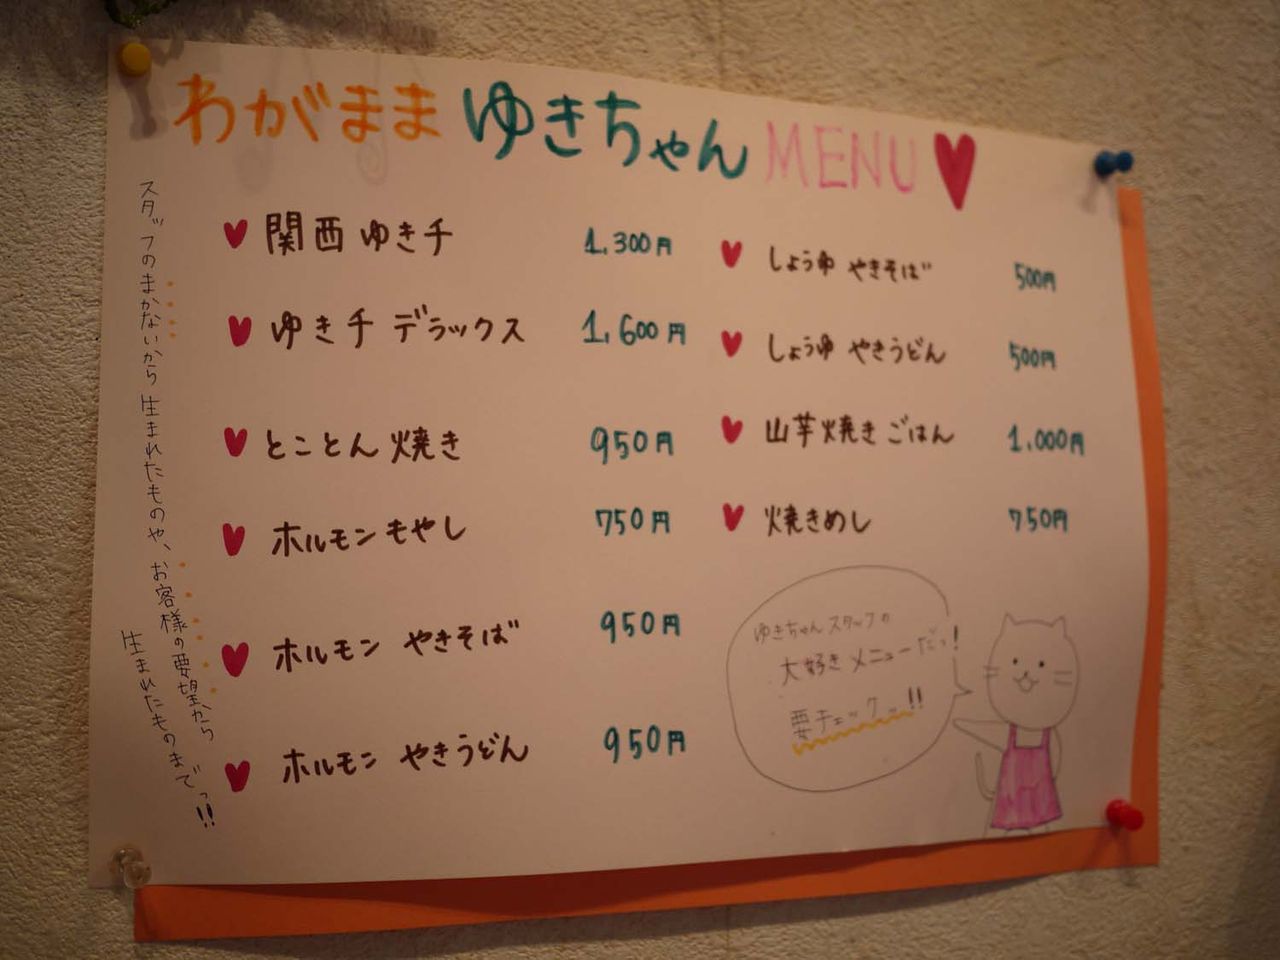 わがままゆきちゃんMENU♥
スタッフのまかないから生まれたものや、お客様の要望から
生まれたものまでっ!!
♥ 関西ゆき千 1,300円
♥ ゆき千デラックス 1,600円
♥ とことん焼き 950円
♥ ホルモンもやし 750円
♥ ホルモン やきそば 950円
♥ ホルモン やきうどん 950円
♥ しょうゆ やきそば 500円
♥ しょうゆ やきうどん 500円
♥ 山芋焼きごはん 1,000円
♥ 焼きめし 750円
ゆきちゃんスタッフの
大好きメニューだっ!
要チェックッ!!